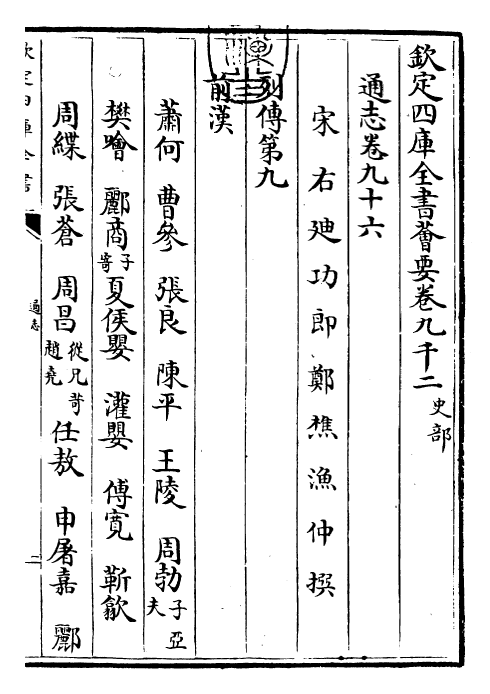 欽定四庫全書薈要卷九千二 史部
通志卷九十六
宋右迪功郎鄭樵漁仲撰
列傳第九
前漢
蕭何 曹參 張良 陳平 王陵 周勃 子亞夫
樊噲 酈商 子寄 夏侯嬰 灌嬰 傅寛 靳歙
周緤 張蒼 周昌 從兄苛 趙堯 任敖 申屠嘉 酈
欽定四庫全書
通志
二